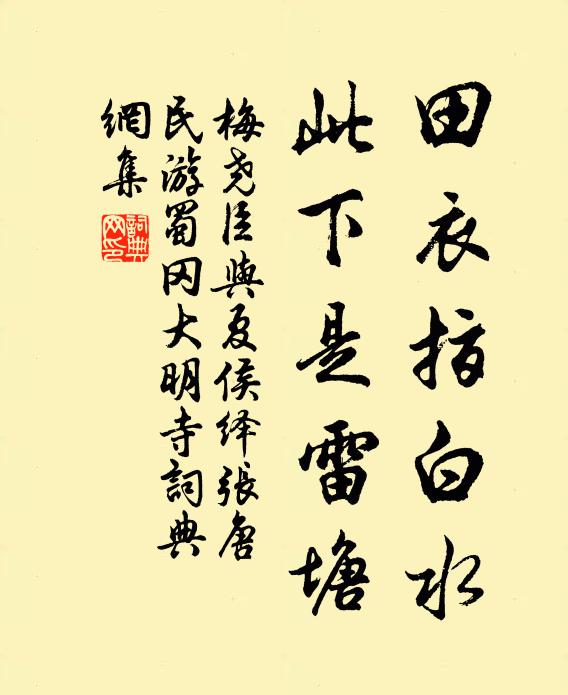 田衣指白水
此下是雷塘
梅尧臣與夏侯绎張唐
民游蜀冈大明寺詞典
網集
詞典網印